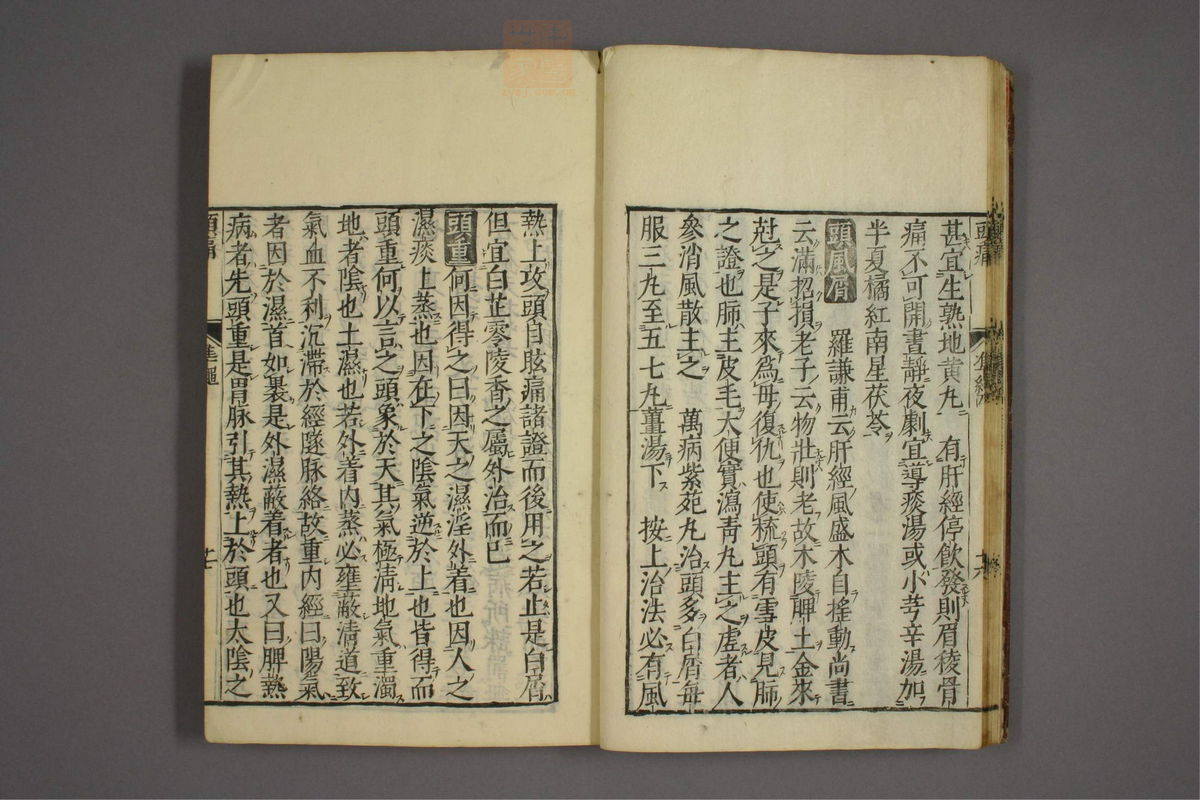 甚宜生熟地黄丸　有肝經停飲發則眉稜骨
痛不可開晝靜夜劇宜導痰湯或小芎辛湯加
半夏橘紅南星茯苓
頭風屑　羅謙甫云肝經風盛木自搖動尚書
云滿招損老子云物壯則老故木陵脾土金來
尅之是子來爲母復仇也使梳頭有雪皮見肺
之證也肺主皮毛大便實瀉青丸主之虚者人
參消風散主之　萬病紫菀丸治頭多白屑每
服三丸至五七丸薑湯下　按上治法必有風
頭痛
熱上攻頭目眩痛諸證而後用之若止是白屑
但宜白芷零陵香之屬外治而已
頭重何因得之曰因天之濕淫外着也因人之
濕痰上蒸也因在下之陰氣逆於上也皆得而
頭重何以言之頭象於天其氣極清地氣重濁
地者陰也土濕也若外着内蒸必壅蔽清道致
氣血不利沉滯於經隧脉絡故重内經曰陽氣
者因於濕首如裹是外濕蔽着者也又曰脾熱
病者先頭重是胃脉引其熱上於頭也太陰之
頭痛
準繩